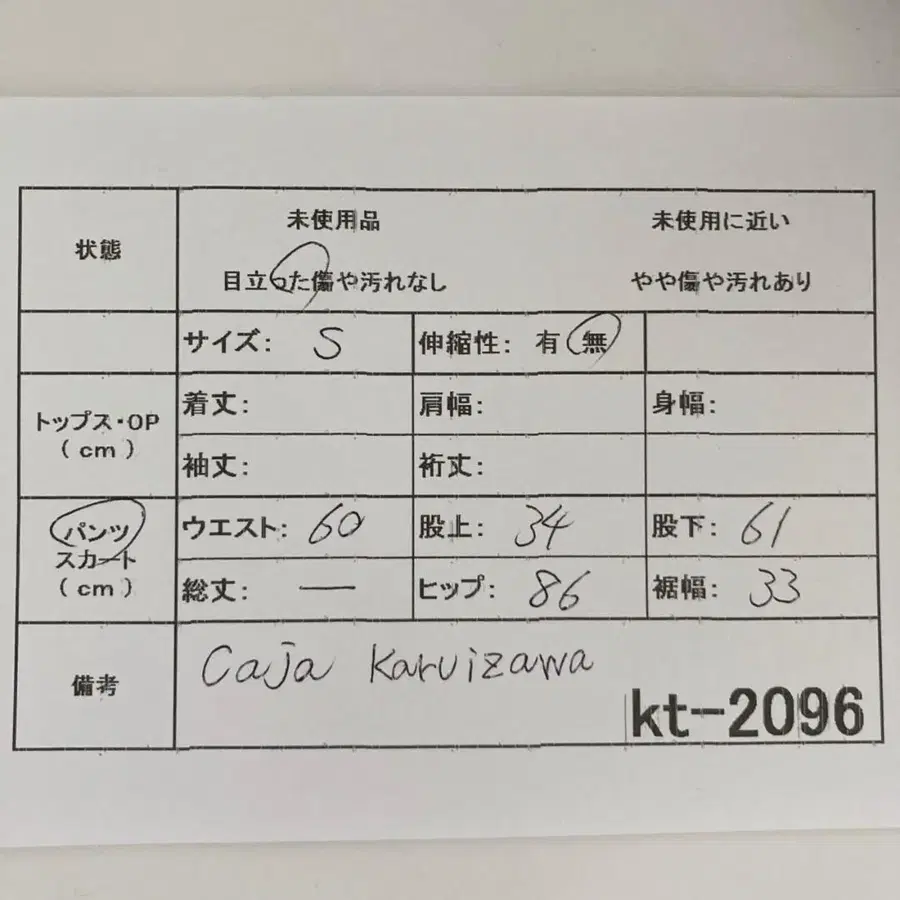 状態
未使用品 未使用に近い
目立った傷や汚れなし やや傷や汚れあり
サイズ: S 伸縮性: 有 無
トップス・OP
(cm)
着丈: 肩幅: 身幅:
袖丈: 裄丈:
パンツ
スカート
(cm)
ウエスト: 60 股上: 34 股下: 61
総丈: — ヒップ: 86 裾幅: 33
備考
Caja Karuizawa
kt-2096